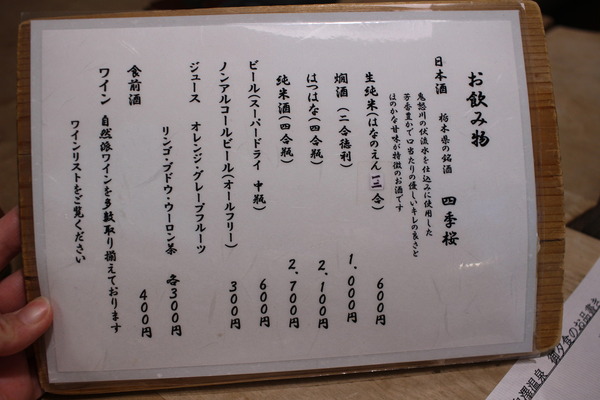 お飲み物
日本酒　栃木県の銘酒　四季桜
鬼怒川の伏流水を仕込みに使用した
芳香豊かで口当たりの優しいキレの良さと
ほのかな甘味が特徴のお酒です
生純米(はなのえん 一合)　600円
燗酒(二合徳利)　1,000円
はつはな(四合瓶)　2,100円
純米酒(四合瓶)　2,700円
ビール(スーパードライ 中瓶)　600円
ノンアルコールビール(オールフリー)　300円
ジュース　オレンジ・グレープフルーツ
リンゴ・ブドウ・ウーロン茶　各300円
食前酒　400円
ワイン　自然派ワインを多数取り揃えております
ワインリストをご覧ください
温泉　御夕食のお品書き